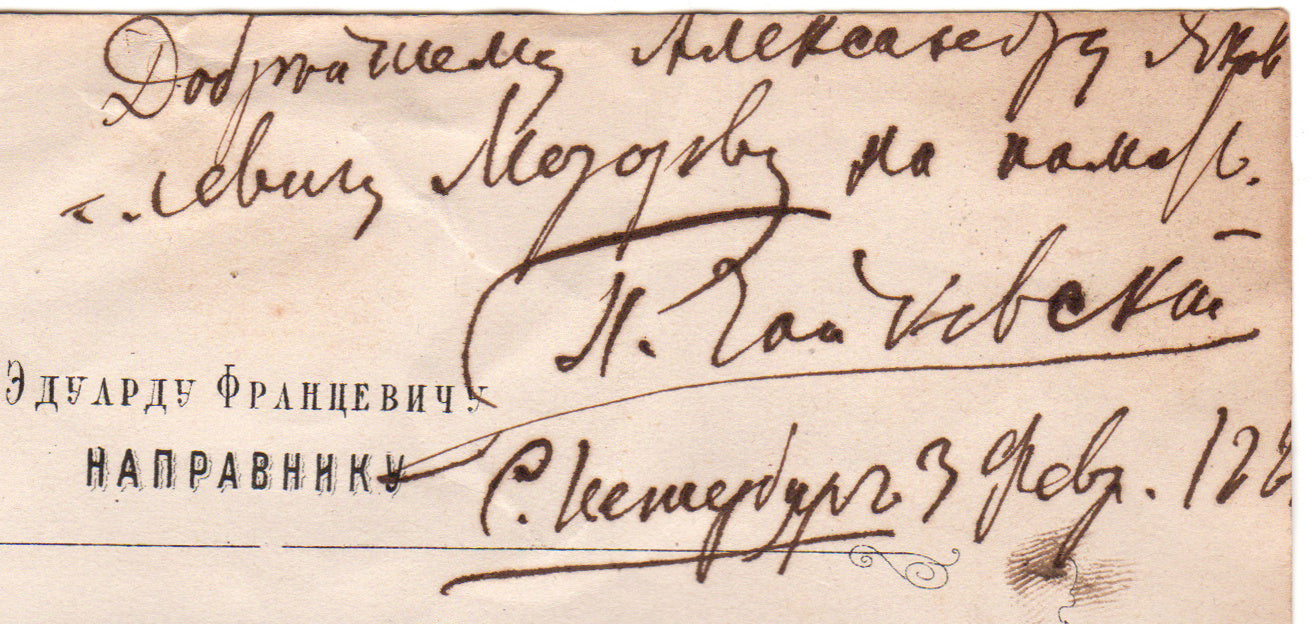 Добрѣйшему Александру Яков
левичу Морозову на память.
П. Чайковскій
ЭДУАРДУ ФРАНЦЕВИЧУ
НАПРАВНИКУ
С. Петербургъ 3 Февр.